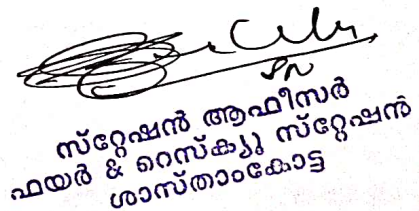 സ്റ്റേഷൻ ആഫീസർ
ഫയർ & റെസ്ക്യൂ സ്റ്റേഷൻ
ശാസ്താംകോട്ട